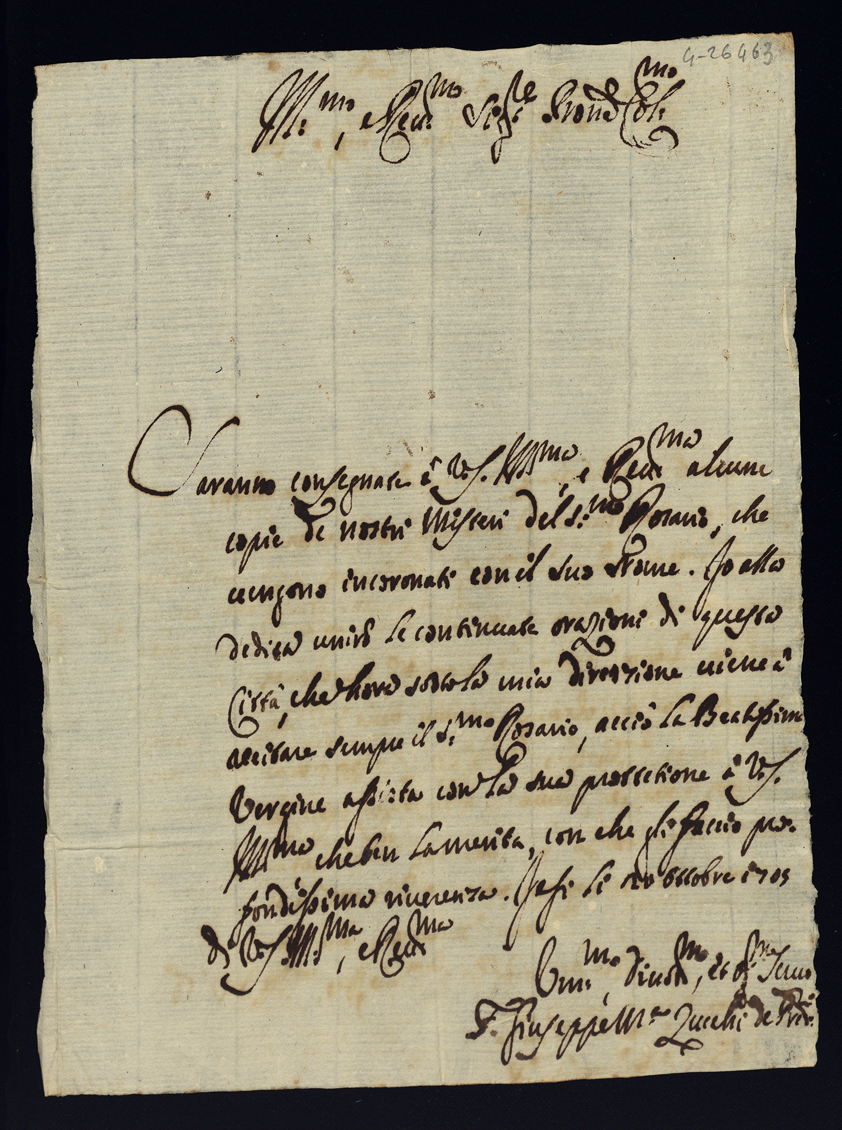 4-26463
Ill.mo, e Rev.mo Sig.re Pron.e Col.mo
Saranno consegnate à V.S. Ill.ma, e Rev.ma alcune
copie de nostri Misteri del S.mo Rosario, che
vengono incoronati con il suo Nome. Io alla
dedica unirò le continuate orazioni di questa
Città, che hora sotto la mia direzzione viene à
recitare sempre il S.mo Rosario, acciò la Beatissima
Vergine assista con la sua protettione à V.S.
Ill.ma che ben la merita, con che gli faccio pro-
fondissima riverenza. Jesi li Ottobre 1705
di V.S. Ill.ma, e Rev.ma
Um.mo, Divot.mo, et Obl.mo Servo
F. Giuseppe M.a Zucchi de Pred.ri